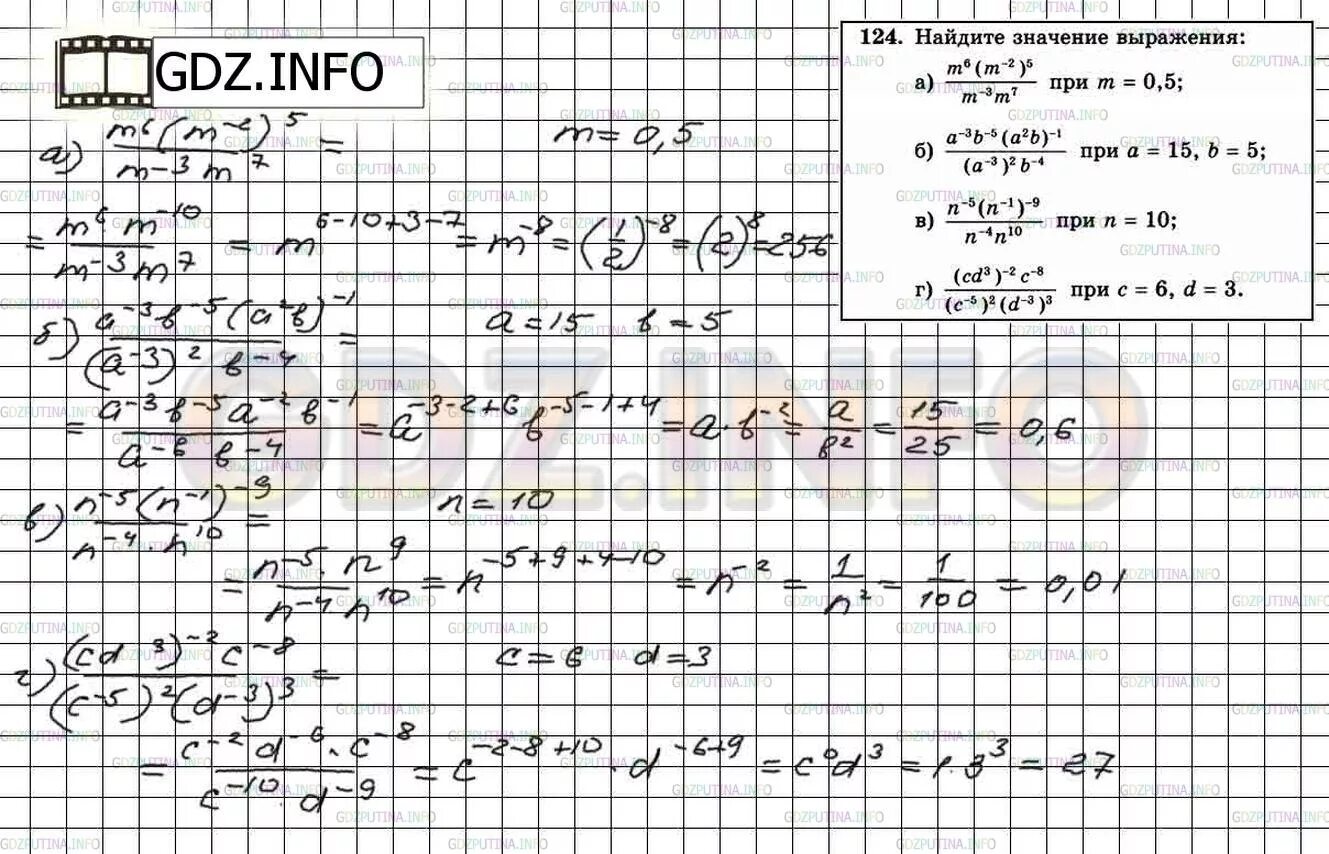 GDZ.INFO
124. Найдите значение выражения:
а) m⁶(m⁻²)⁵ / m⁻³m⁷ при m = 0,5;
б) a⁻³b⁻⁵(a²b)⁻¹ / (a⁻³)²b⁻⁴ при a = 15, b = 5;
в) n⁻⁵(n⁻¹)⁻⁹ / n⁻⁴n¹⁰ при n = 10;
г) (cd³)⁻²c⁻⁸ / (c⁻⁵)²(d⁻³)³ при c = 6, d = 3.
а) m⁶(m⁻²)⁵ / m⁻³m⁷ = m = 0,5
= m⁶ m⁻¹⁰ / m⁻³m⁷ = m⁶⁻¹⁰⁺³⁻⁷ = m⁻⁸ = (1/2)⁻⁸ = (2)⁸ = 256
б) a⁻³b⁻⁵(a²b)⁻¹ / (a⁻³)² b⁻⁴ = a = 15 b = 5
= a⁻³b⁻⁵a⁻²b⁻¹ / a⁻⁶ b⁻⁴ = a⁻³⁻²⁺⁶ b⁻⁵⁻¹⁺⁴ = a·b⁻² = a/b² = 15/25 = 0,6
в) n⁻⁵(n⁻¹)⁻⁹ / n⁻⁴·n¹⁰ = n = 10
= n⁻⁵·n⁹ / n⁻⁴n¹⁰ = n⁻⁵⁺⁹⁺⁴⁻¹⁰ = n⁻² = 1/n² = 1/100 = 0,01
г) (cd³)⁻²c⁻⁸ / (c⁻⁵)²(d⁻³)³ = c = 6 d = 3
= c⁻²d⁻⁶·c⁻⁸ / c⁻¹⁰·d⁻⁹ = c⁻²⁻⁸⁺¹⁰·d⁻⁶⁺⁹ = c⁰d³ = 1·3³ = 27
GDZ.INFO
GDZPUTINA.INFO